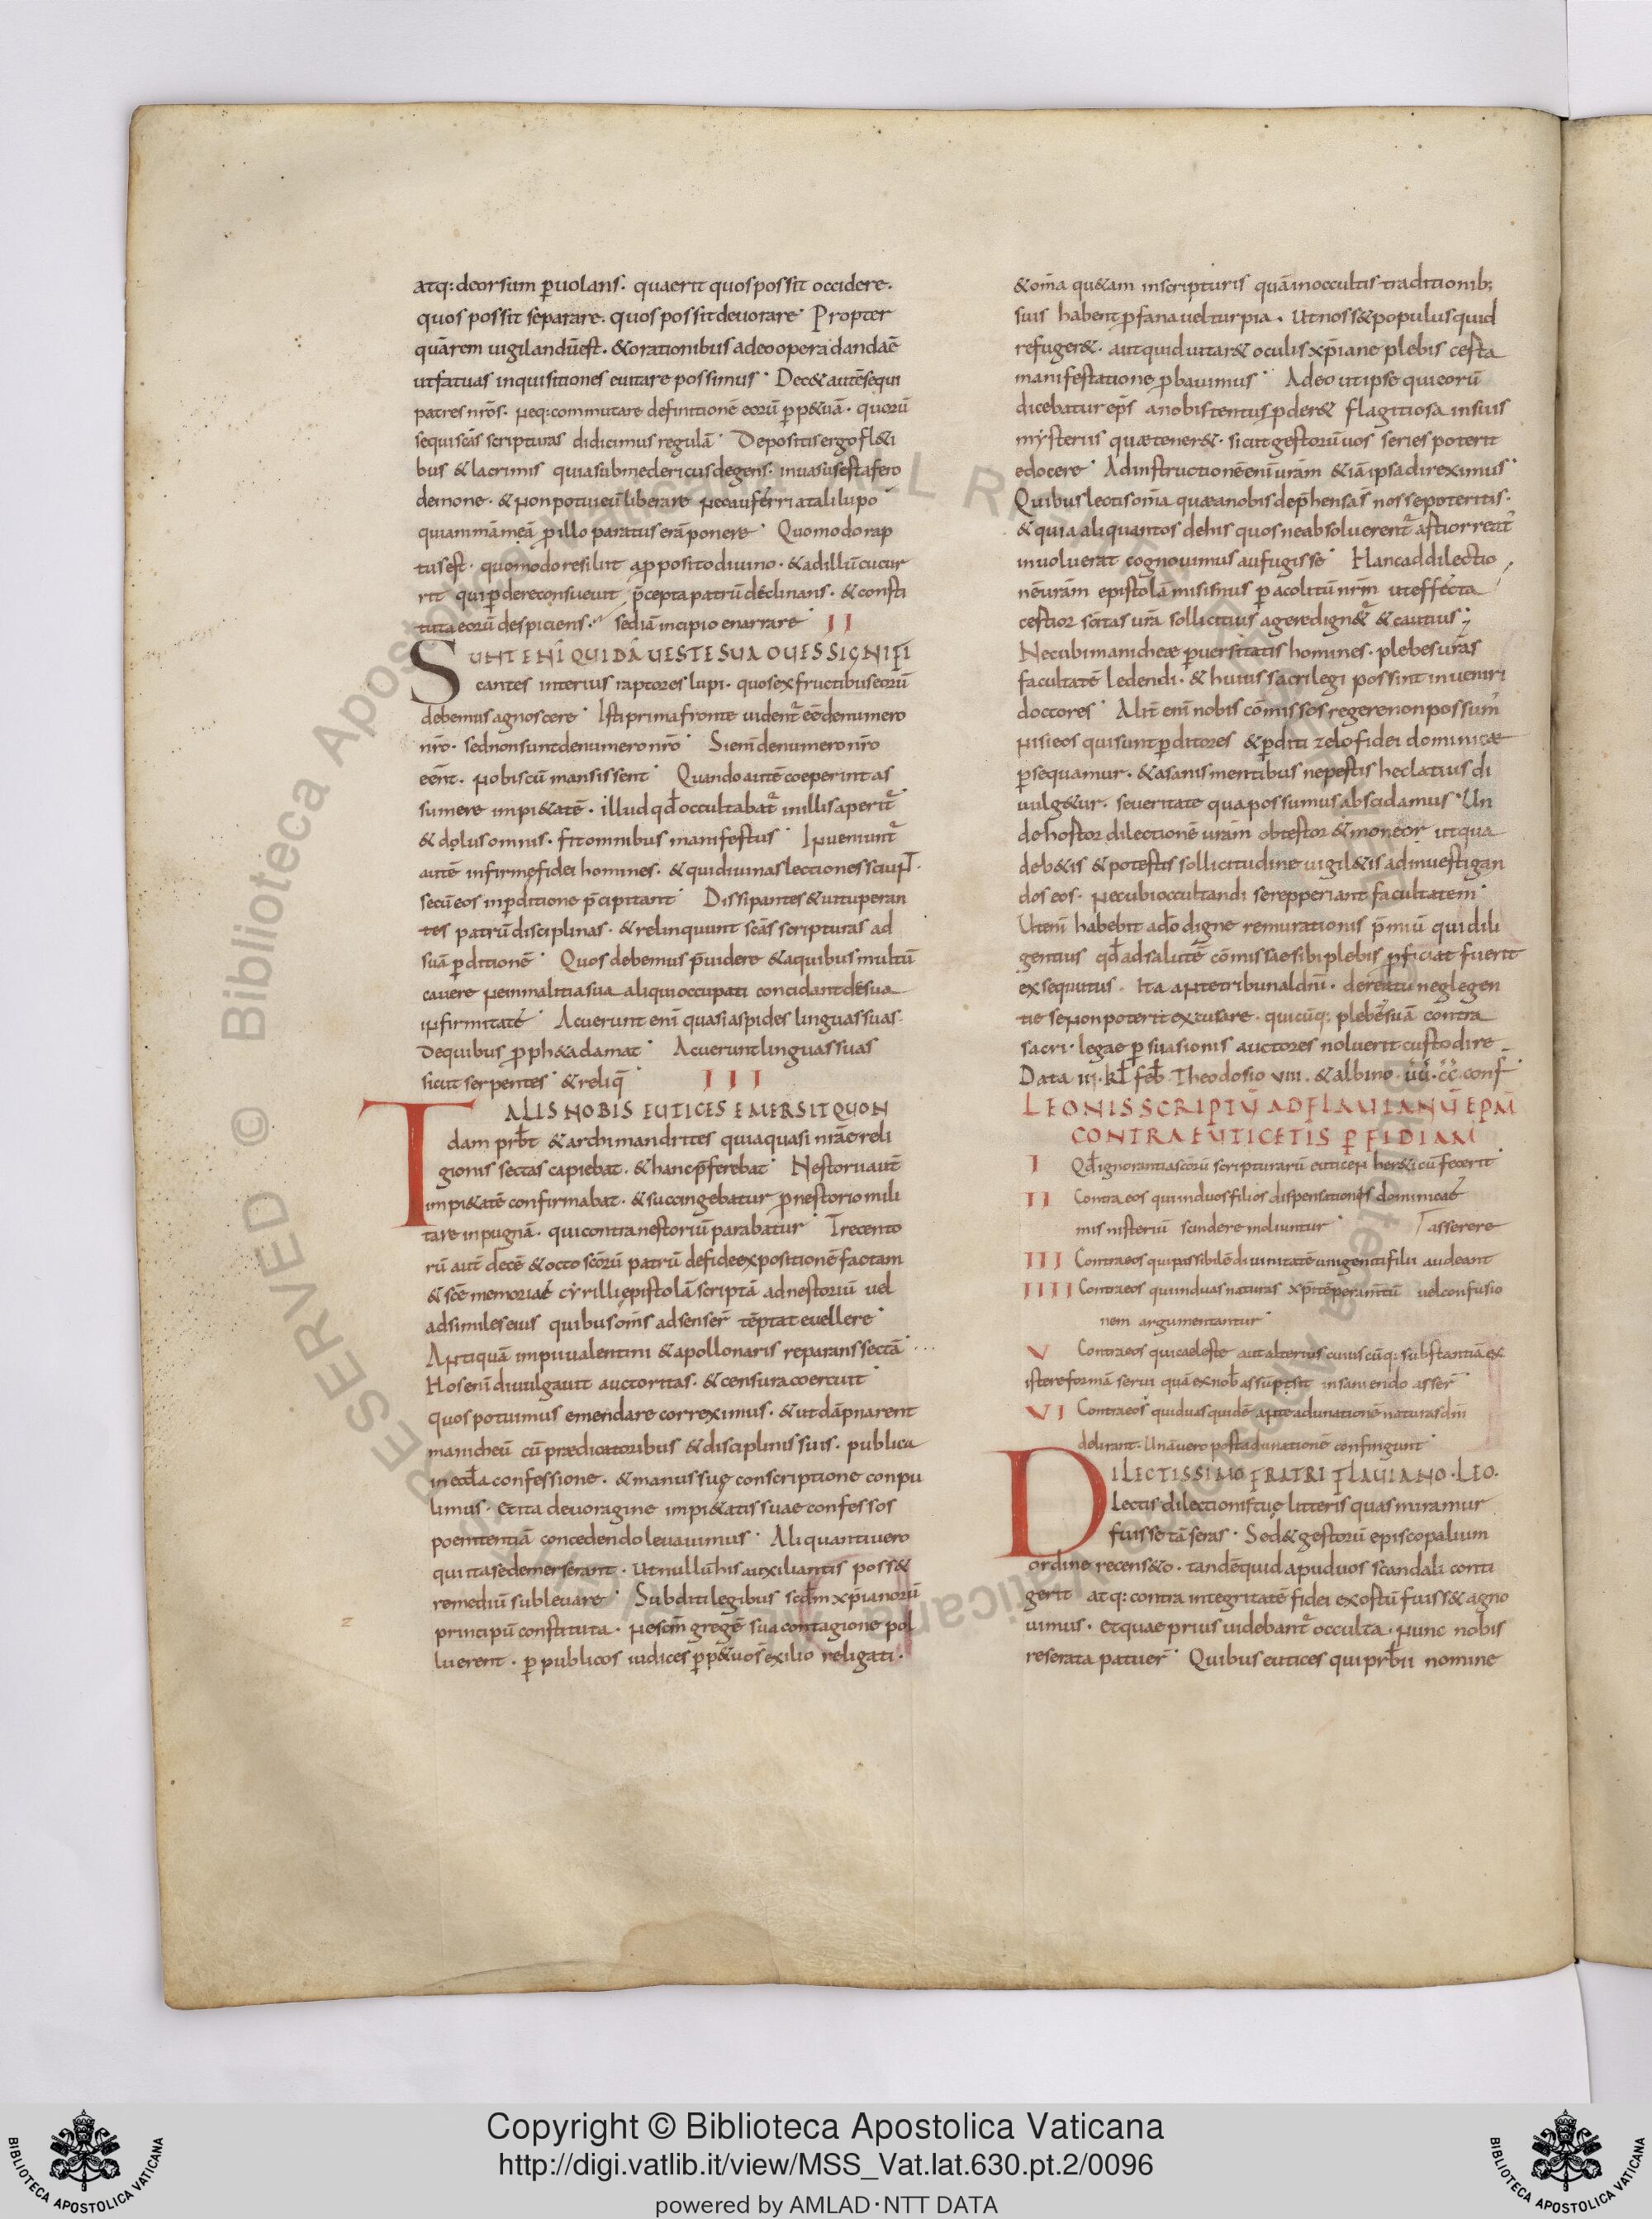 atq: deorsum p̄uolans. quaerit quos possit occidere.
quos possit separare. quos possit deuorare· Propter
quā rem uigilandū est. & orationibus adeo opera dandaē
ut fatuas inquisitiones euitare possimus· Dec& autē sequi
patres nr̄os. neq: commutare definitionē eorū ꝑp&uā. quorū
sequi scās scripturas didicimus regulā· Depositis ergo fl&i
bus & lacrimis quia sub medericus degens. inuasus est a fero
demone. & non potui eū liberare nec auferri a tali lupo
qui animā meā ꝓ illo paratus erā ponere· Quomodo rap
tus est. quomodo resiliit a proposito diuino. & ad illū cucur
rit qui ꝑdere consueuit p̄cepta patrū declinans. & consti
tuta eorū despiciens. sed iā incipio enarrare· II
SUNT ENĪ QUIDĀ UESTE SUA OUES SIGNIFI
cantes interius raptores lupi. quos ex fructibus eorū
debemus agnoscere· Isti prima fronte uident̄ eē de numero
nr̄o. sed non sunt de numero nr̄o· Si enī de numero nr̄o
eēnt. nobiscū mansissent· Quando autē coeperint as
sumere impi&atē. illud qd̄ occultabat̄ in illis aperit̄
& dolus omnis. fit omnibus manifestus· Inueniunt̄
autē infirmę fidei homines. & qui diuinas lectiones sciunt.
secū eos in ꝑditione p̄cipitant· Dissipantes & uituperan
tes patrū disciplinas. & relinquunt scās scripturas ad
suā ꝑditionē· Quos debemus p̄uidere & a quibus multū
cauere ne in malitia sua aliqui occupati concidant de sua
infirmitate· Acuerunt enī quasi aspides linguas suas.
De quibus ꝓph&a clamat· Acuerunt linguas suas
sicut serpentes· & reliq̄· III
TALIS NOBIS EUTICES EMERSIT QUON
dam prb̄t & archimandrites quia quasi nr̄ae reli
gionis sectas capiebat. & hanc p̄ferebat· Nestorii autē
impi&atē confirmabat. & succingebatur ꝓ nestorio mili
tare in pugnā. qui contra nestoriū parabatur· Trecento
rū autē decē & octo scōrū patrū de fide expositionē factam
& scē memoriae cyrilli epistolā scriptā ad nestoriū uel
ad similes eius quibus om̄s adsenser̄ tēptat euellere·
Antiquā impii ualentini & apollonaris reparans sectā·
Hos enī diuulgauit auctoritas. & censura coercuit
quos potuimus emendare correximus. & ut dāpnarent
manicheū cū praedicatoribus & disciplinis suis. publica
in eccl̄a confessione. & manus suę conscriptione conpu
limus. Et ita de uoragine impi&atis suae confessos
poenitentiā concedendo leuauimus· Aliquanti uero
qui ita se demerserant. ut nullū his auxiliantis poss&
remediū subleuare· Subditi legibus scd̄m xp̄ianorū
principū constituta. ne scm̄ gregē sua contagione pol
luerent. ꝑ publicos iudices ꝑp&uo s̄ exilio religati.
& om̄a qu& am in scripturis quā in occultis traditionib;
suis habent ꝓfana uel turpia. ut noss& populus quid
refuger&. aut quid uitar& oculis xp̄iane plebis certa
manifestatione ꝓbauimus· Adeo ut ipse qui eorū
dicebatur ep̄s a nobis tentus ꝓder& flagitiosa in suis
mysteriis quae tener&. sicut gestorū uos series poterit
edocere· Ad instructionē enī ur̄am & iā ipsa direximus·
Quibus lectis om̄a quae a nobis dep̄hensa s̄ nosse poteritis.
& quia aliquantos de his quos ne absoluerent̄ astior reat̄
inuoluerat cognouimus aufugisse· Hanc ad dilectio
nē ur̄am epistolā misimus ꝑ acolitū nr̄m ut effecta
certior sc̄itas ur̄a sollicitius agere dign&̄ & cautius·
Necubi manicheae ꝑuersitatis homines. plebes ur̄as
facultatē ledendi. & huius sacrilegi possint inueniri
doctores· Alit̄ enī nobis cōmissos regere non possum̄
nisi eos qui sunt ꝑditores & ꝑditi zelo fidei dominicae
ꝑsequamur. & a sanis mentibus ne pestis hec latius di
uulg&ur. seueritate qua possumus abscidamus· Un
de hortor dilectionē ur̄am obtestor & moneor ut qua
deb&is & potestis sollicitudine uigil&is ad inuestigan
dos eos. necubi occultandi se repperiant facultatem·
Ut enī habebit a dō digne remurationis p̄miū qui dili
gentius qd̄ ad salutē cōmissae sibi plebis ꝓficiat fuerit
exsequutus. Ita ante tribunal dn̄i. de reatu neglegen
tie se non poterit excusare. quicūq: plebē suā contra
sacri·legae ꝑsuasionis auctores noluerit custodire
Data III· kl̄ feb̄ Theodosio VIII. & albino. uū· cc̄· conf·
LEONIS SCRIPTŪ AD FLAUIANŪ EPM̄
CONTRA EUTICETIS ꝐFIDIAM
I Qd̄ ignorantia scōrū scripturarū euticen her&icū fecerit·
II Contra eos qui in duos filios dispensationis dominicae
misnisteriū scindere moliuntur· Γasserere
III Contra eos qui passibilē diuinitatē unigeniti filii audeant
IIII Contra eos qui in duas naturas xp̄i tēperam̄tū uel confusio
nem argumentantur·
V Contra eos qui caeleste aut alterius cuiuscūq: substantiae ex
istere formā serui quā ex nob̄ assūpsit insaniendo asser̄
VI Contra eos qui duas quidē ante adunationē naturas dn̄i
delirant. Unā uero post adunationē confingunt·
DILECTISSIMO FRATRI FLAUIANO·LEO·
Lectis dilectionis tuę litteris quas miramur
fuisse tā seras· Sed & gestorū episcopalium
ordine recens&o. tandē quid apud uos scandali conti
gerit atq: contra integritatē fidei exortū fuiss& agno
uimus. Et quae prius uidebant̄ occulta. nunc nobis
reserata patuer̄· Quibus eutices qui prb̄ii nomine
2
Copyright © Biblioteca Apostolica Vaticana
http://digi.vatlib.it/view/MSS_Vat.lat.630.pt.2/0096
powered by AMLAD·NTT DATA